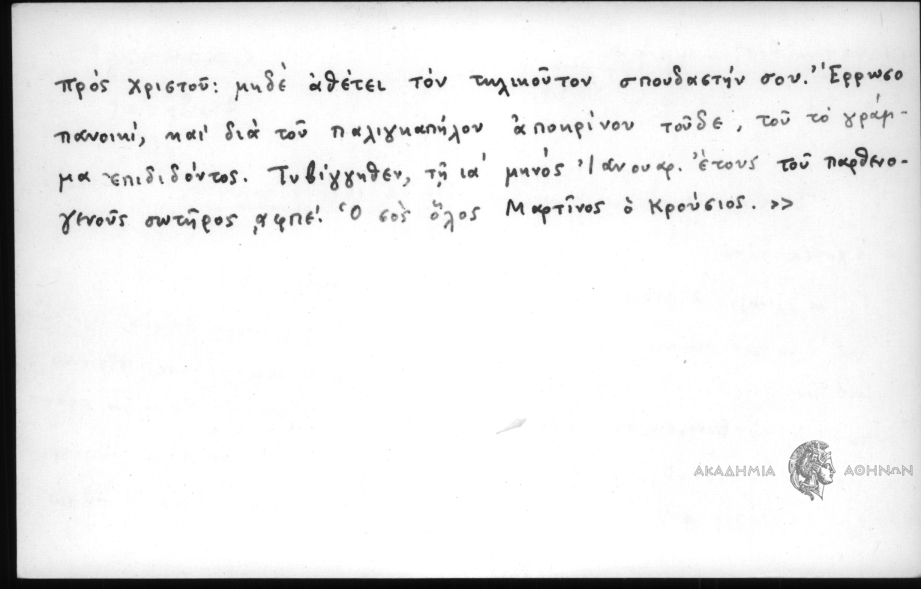 πρός Χριστοῦ: μηδέ ἀθέτει τόν τηλικοῦτον σπουδαστήν σου. Ἔρρωσο
πανοικί, καί διά τοῦ παλιγκαπήλου ἀποκρίνου τοῦδε, τοῦ τό γράμ-
μα ἐπιδιδόντος. Τυβίγγηθεν, τῇ ια΄ μηνός Ἰανουαρ. ἔτους τοῦ παρθενο-
γενοῦς σωτῆρος ͵αφπε΄. Ὁ σός ὅλος Μαρτῖνος ὁ Κρούσιος. >>
ΑΚΑΔΗΜΙΑ ΑΘΗΝΩΝ